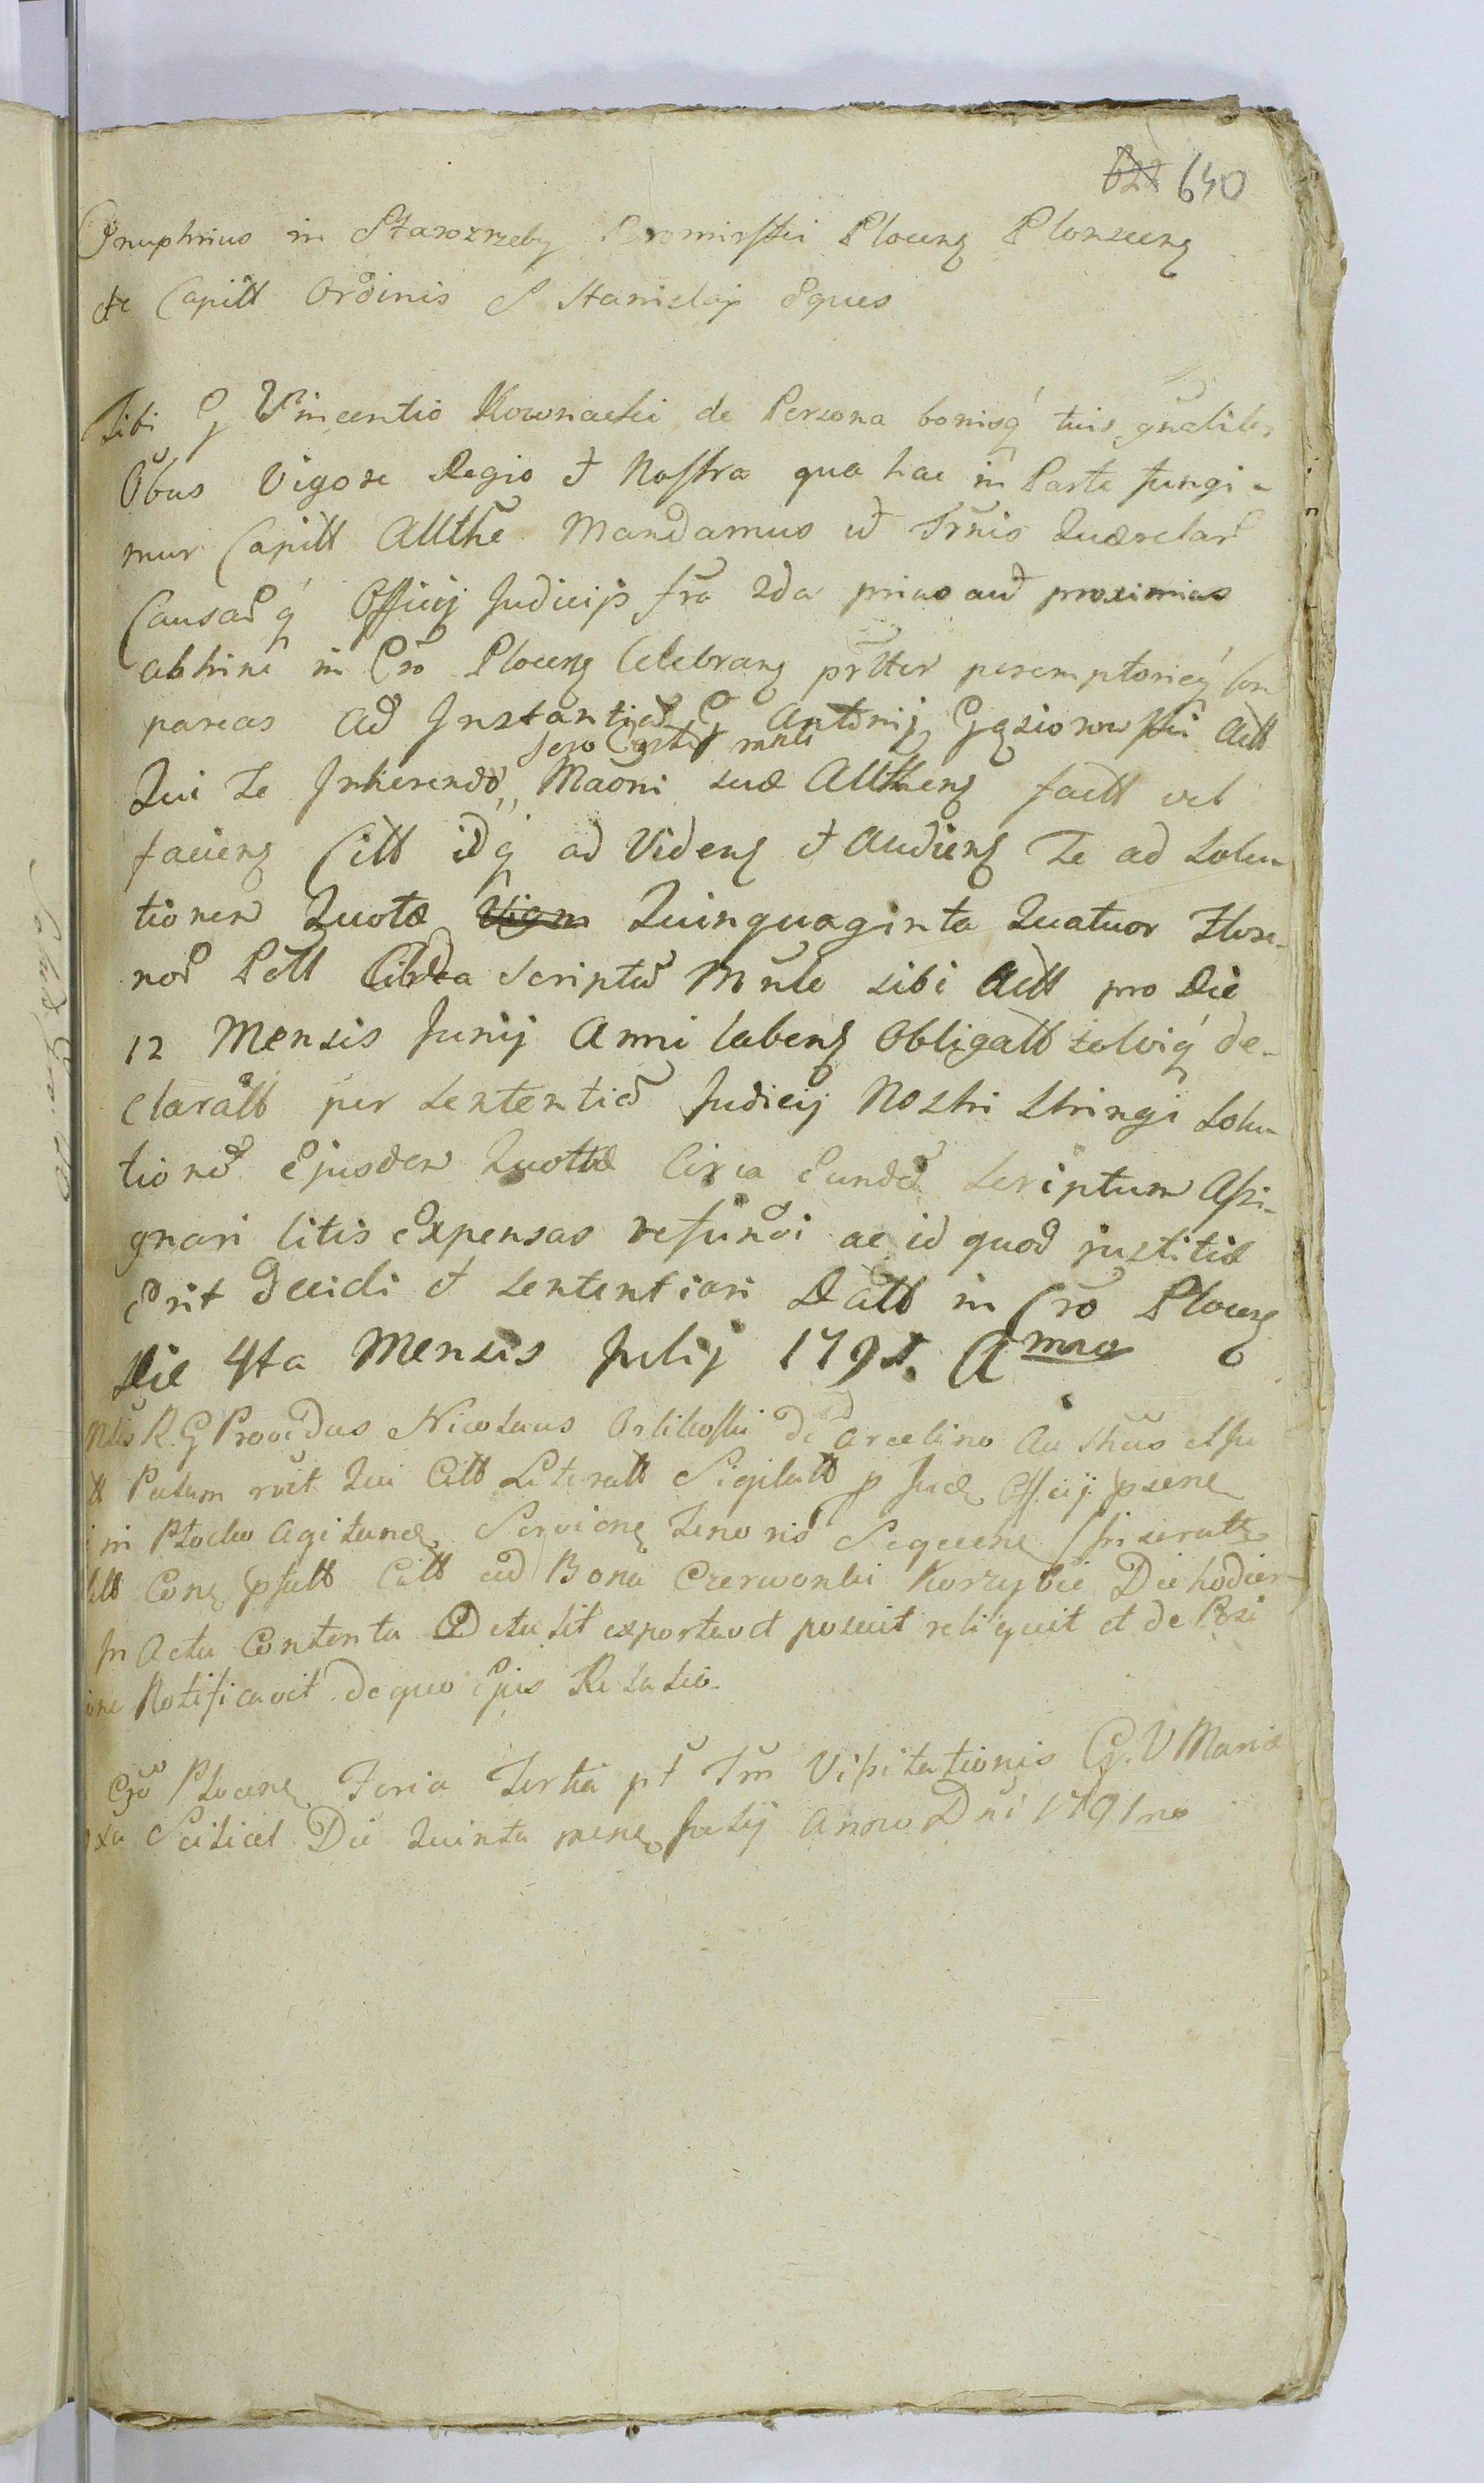 640
Onuphrius in Starozrzeby Bromirski Plocens Plonscens
etc Capitt Ordinis S Stanislai Eques
Tibi G Vincentio Kownacki de Persona bonisq tuis gnalibs
Obus Vigore Regio et Nostra qua hac in Parte fungi-
mur Capitt Atthe Mandamus ut Trnis Quærelar
Causarq Officij Judicijs fra 2da prius aut proximius
abhinc in Cro Plocens Celebrans prltter peremptorieq Com
pareas ad Instantiam G Antonij Gąsiorowski Actt
Qui Te Inherendo Maoni suæ Atthens factt vel
faciens Citt idq ad Videns et Audiens Te ad Solu
tionem Quotæ Quinquaginta Quatuor Flore-
nor Poll Circa Scriptum Mnle sibi Actt pro Die
12 Mensis Junij Anni labens Obligatt solviq de-
claratt per Sententiam Judicij Nostri Stringi Solu
tionem Ejusdem Quottæ Circa Eundem Scriptum Assi-
gnari litis Expensas refundi ac id quod justitiæ
Erit Decidi et Sententiari Datt in Cro Plocens
Die 4ta Mensis Julij 1791. Amo
Mlis R. G Providus Nicolaus Orlikoski de Arcelino
Palam rcit Qui Citt Literatt Sigilatt p Jud Officij psens
in Plocko Agitand Serviens Tenoris Sequens Inseratt
Cons psutt Citt ad Bona Czerwonki Korzybie Die hodier-
In Actu Contenta Detulit exportavit posuit reliquit et de Posi
one Notificavit de quo Ejus Relatio
Cro Plocens Feria Tertia pt Tm Visitationis G. V Mariæ
xa Scilicet Die Quinta mens Julij Anno Dni 1791mo